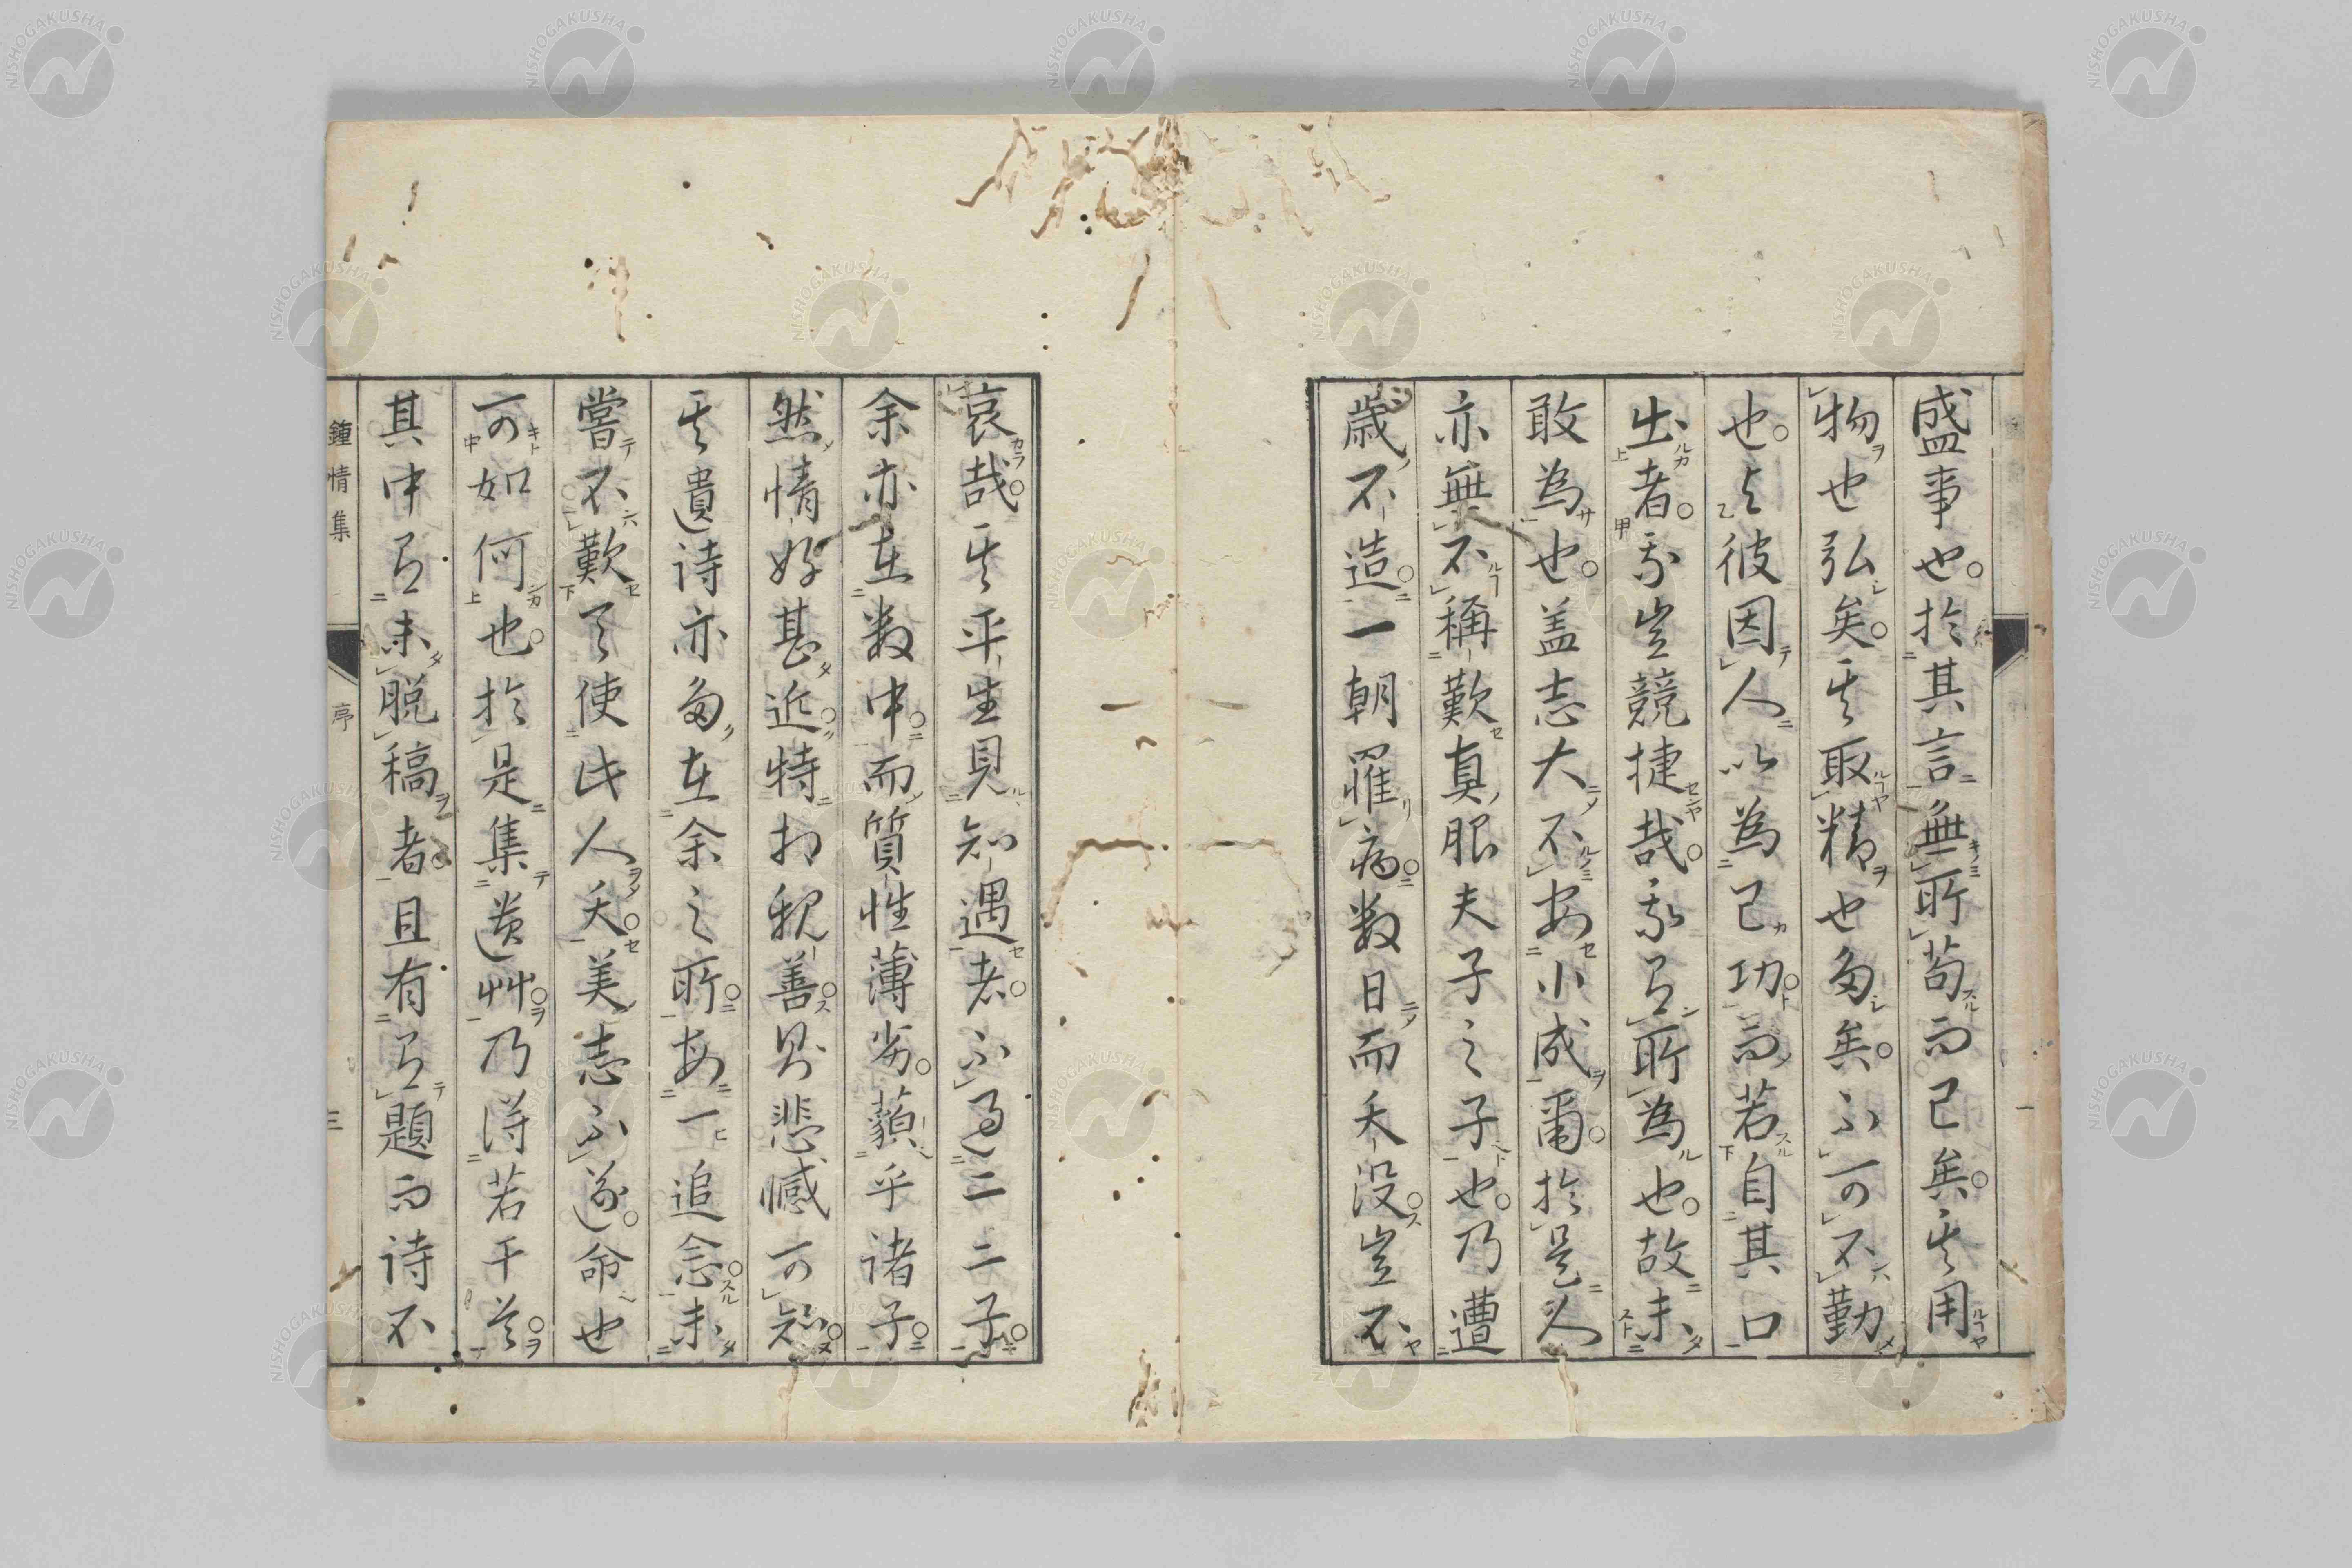 盛事也於其言無所苟而已矣其用
物也弘矣其取精也多矣不可不勤
也与彼因人以為己功而若自其口
出者我豈競捷哉我有所為也故未
敢為也蓋志大不安小成爾於是人
亦無不稱歎真眼夫子之子也乃遭
歳不造一朝罹病数日而夭没豈不
哀哉其平生見知遇者不過二三子
余亦在数中而質性薄劣藐乎諸子
然情好甚近特相親善則悲憾可知
其遺詩亦多在余之所毎一追念未
嘗不歎天使此人夭美志不遂命也
可如何也於是集遺艸乃得若干首
其中有未脱稿者且有有題而詩不
鍾情集
序
三